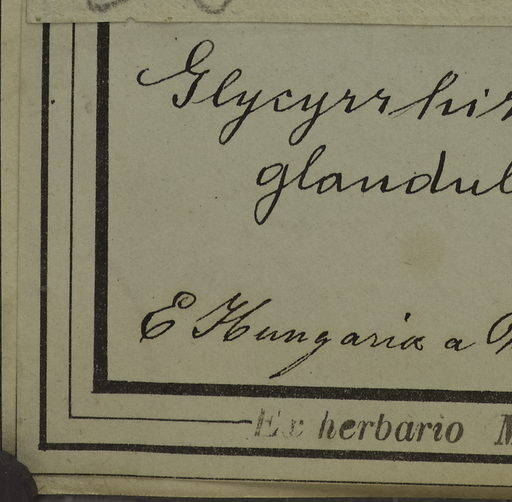 Glycyrrhiz
glandul
E Hungaria a
Ex herbario M